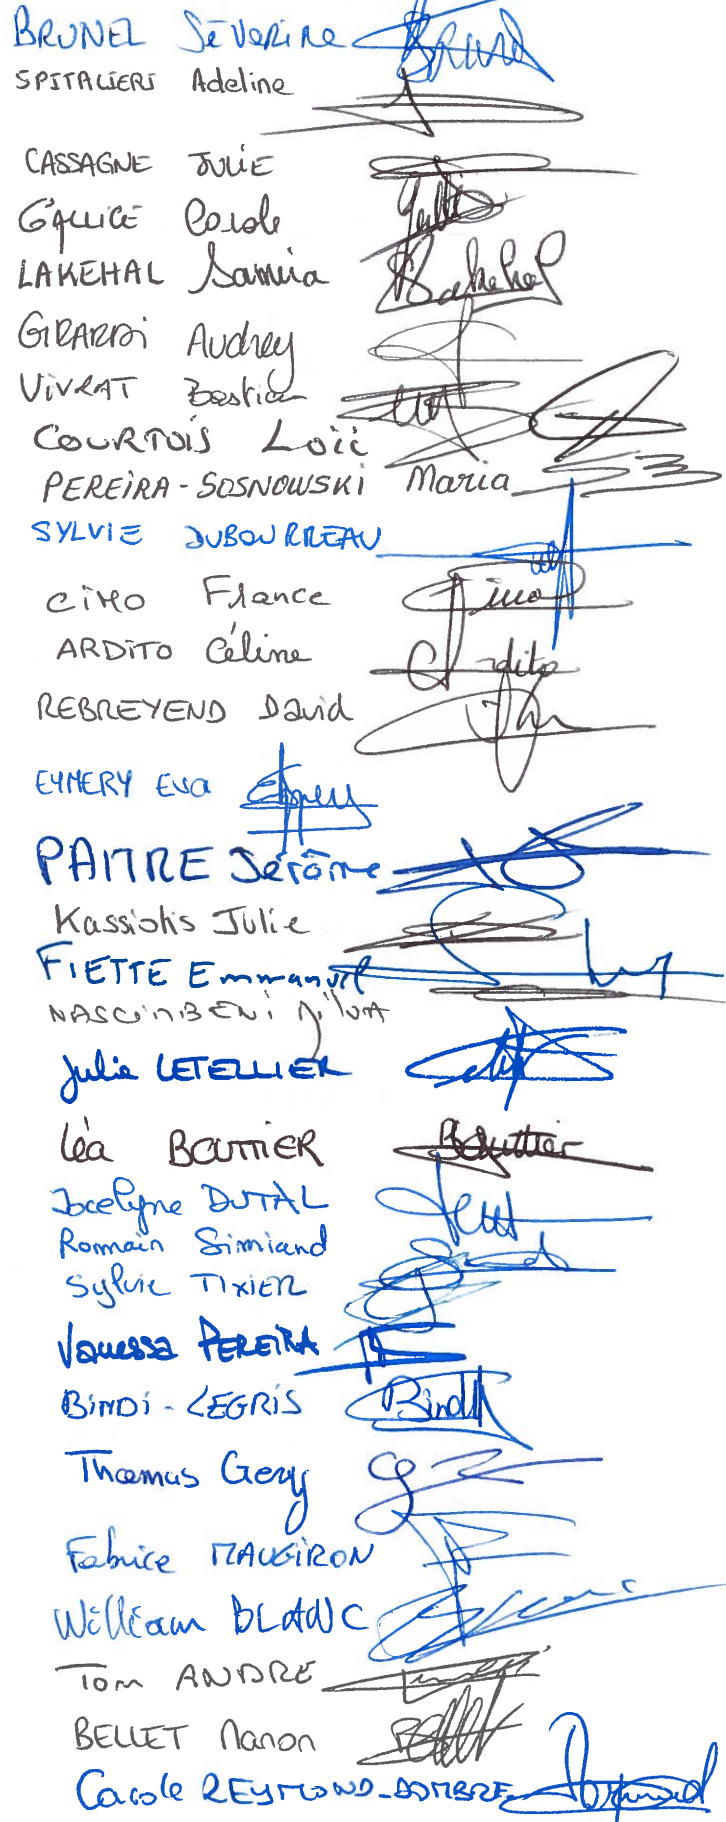 BRUNEL Séverine Brunel
SPITALIERI Adeline
CASSAGNE JULIE
GALLICE Carole
LAKEHAL Samira Lakehal
GIRARDI Audrey
ViVRAT Bastien
COURTOIS Loïc
PEREIRA-SOSNOWSKI Maria
SYLVIE DUBOURREAU
CIMO France Cimo
ARDITO Céline Ardito
REBREYEND David
EYMERY Eva
PAITRE Jérôme
Julie
FIETTE Emmanuel
NASCIMBENI
Julie LETELLIER
Léa BOUTTIER Bouttier
Jocelyne DUTAL
Romain Simiand
Sylvie TIXIER
Vanessa PEREIRA
BINDI-LEGRIS Bindi
Thomas Gery
Fabrice MAUGIRON
William BLANC
Tom ANDRE
BELLET Manon BELLET
Carole REYMOND-DOMBRE